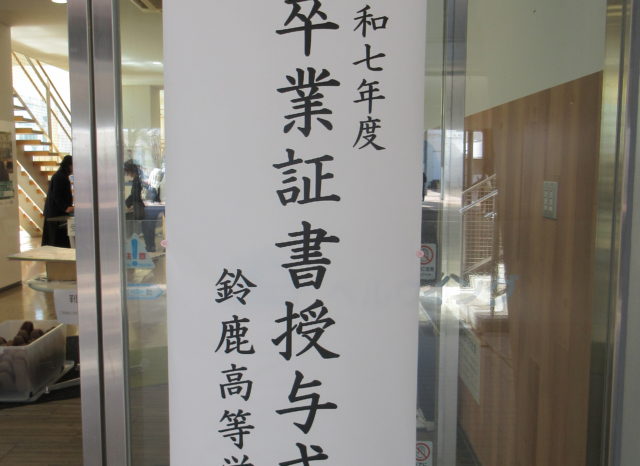 和七年度
卒業証書授与式
鈴鹿高等学